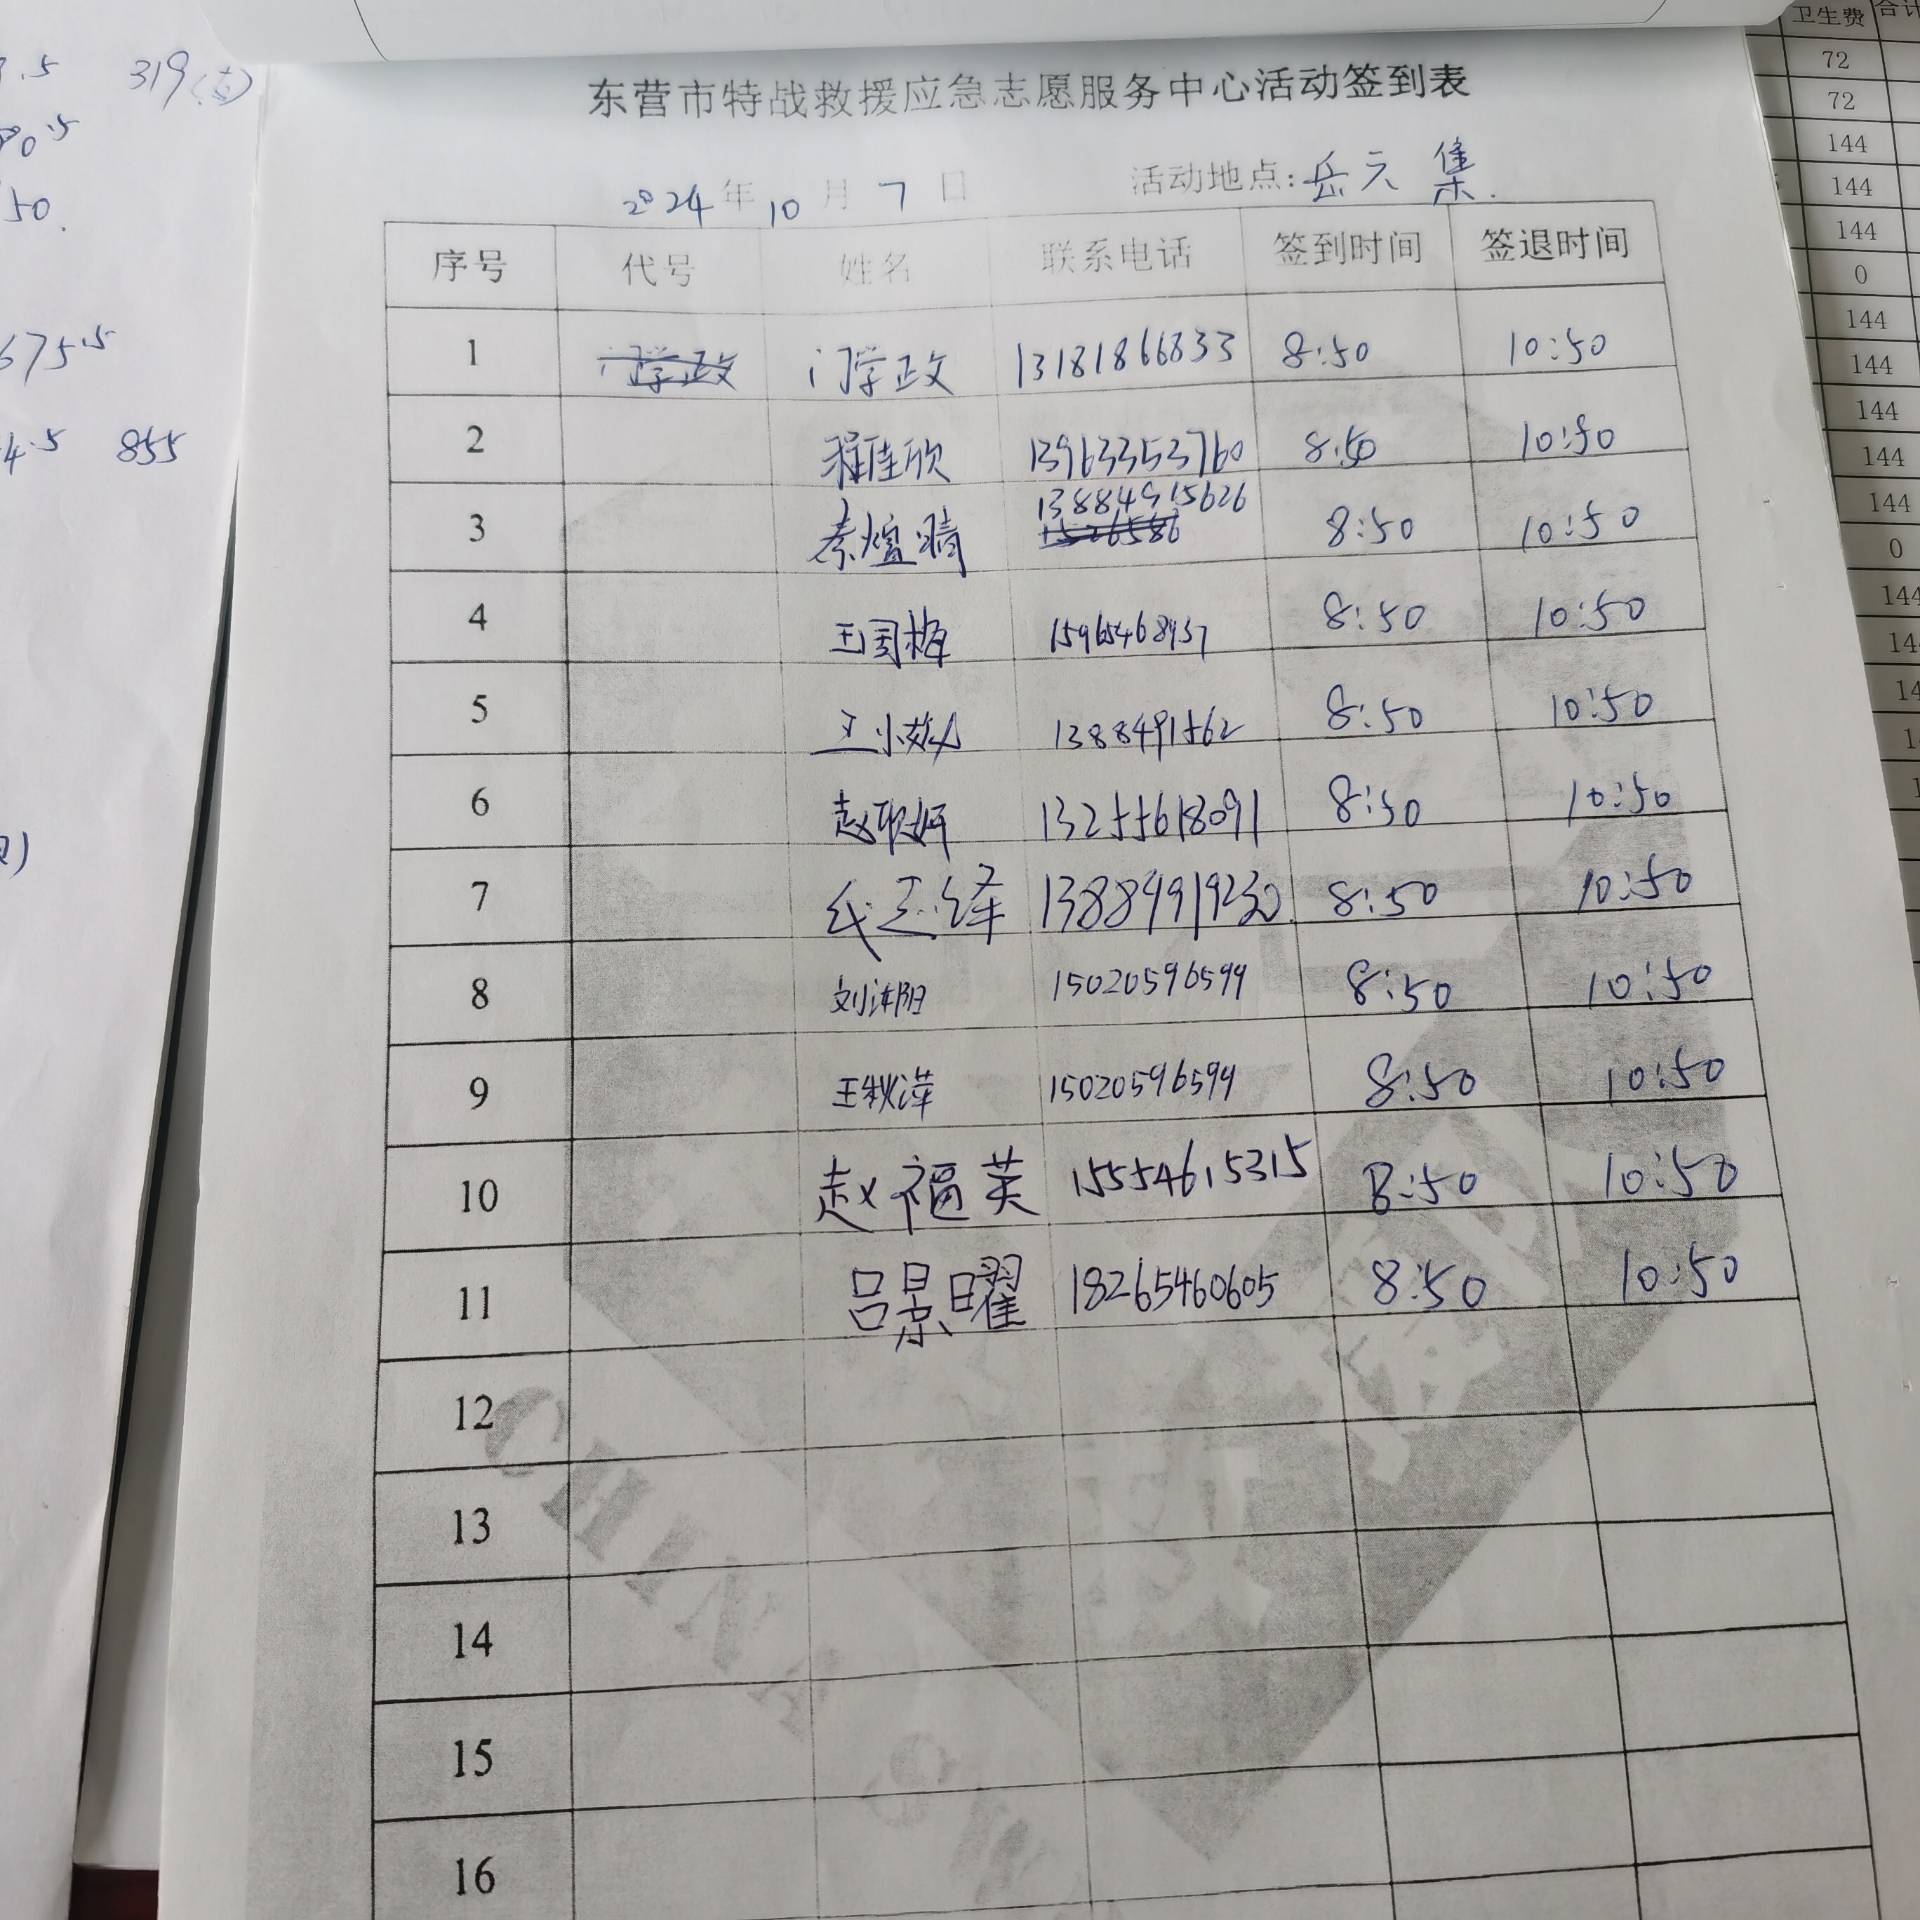 东营市特战救援应急志愿服务中心活动签到表
2024年10月7日 活动地点:岳元集.
序号 代号 姓名 联系电话 签到时间 签退时间
1 门学政 门学政 13181866833 8:50 10:50
2 程佳欣 13963353760 8:50 10:50
13884915626
3 秦煊晴 1526586 8:50 10:50
4 王国梅 15965468937 8:50 10:50
5 王小 1388491562 8:50 10:50
6 赵 13255618091 8:50 10:50
7 13884919230 8:50 10:50
8 刘沐阳 15020596599 8:50 10:50
9 王秋萍 15020596599 8:50 10:50
10 赵福英 15554615315 8:50 10:50
11 吕景曜 18265460605 8:50 10:50
12
13
14
15
16
CHINA
319
50.
675.5
4.5 855
卫生费 合计
72
72
144
144
144
0
144
144
144
144
144
0
144